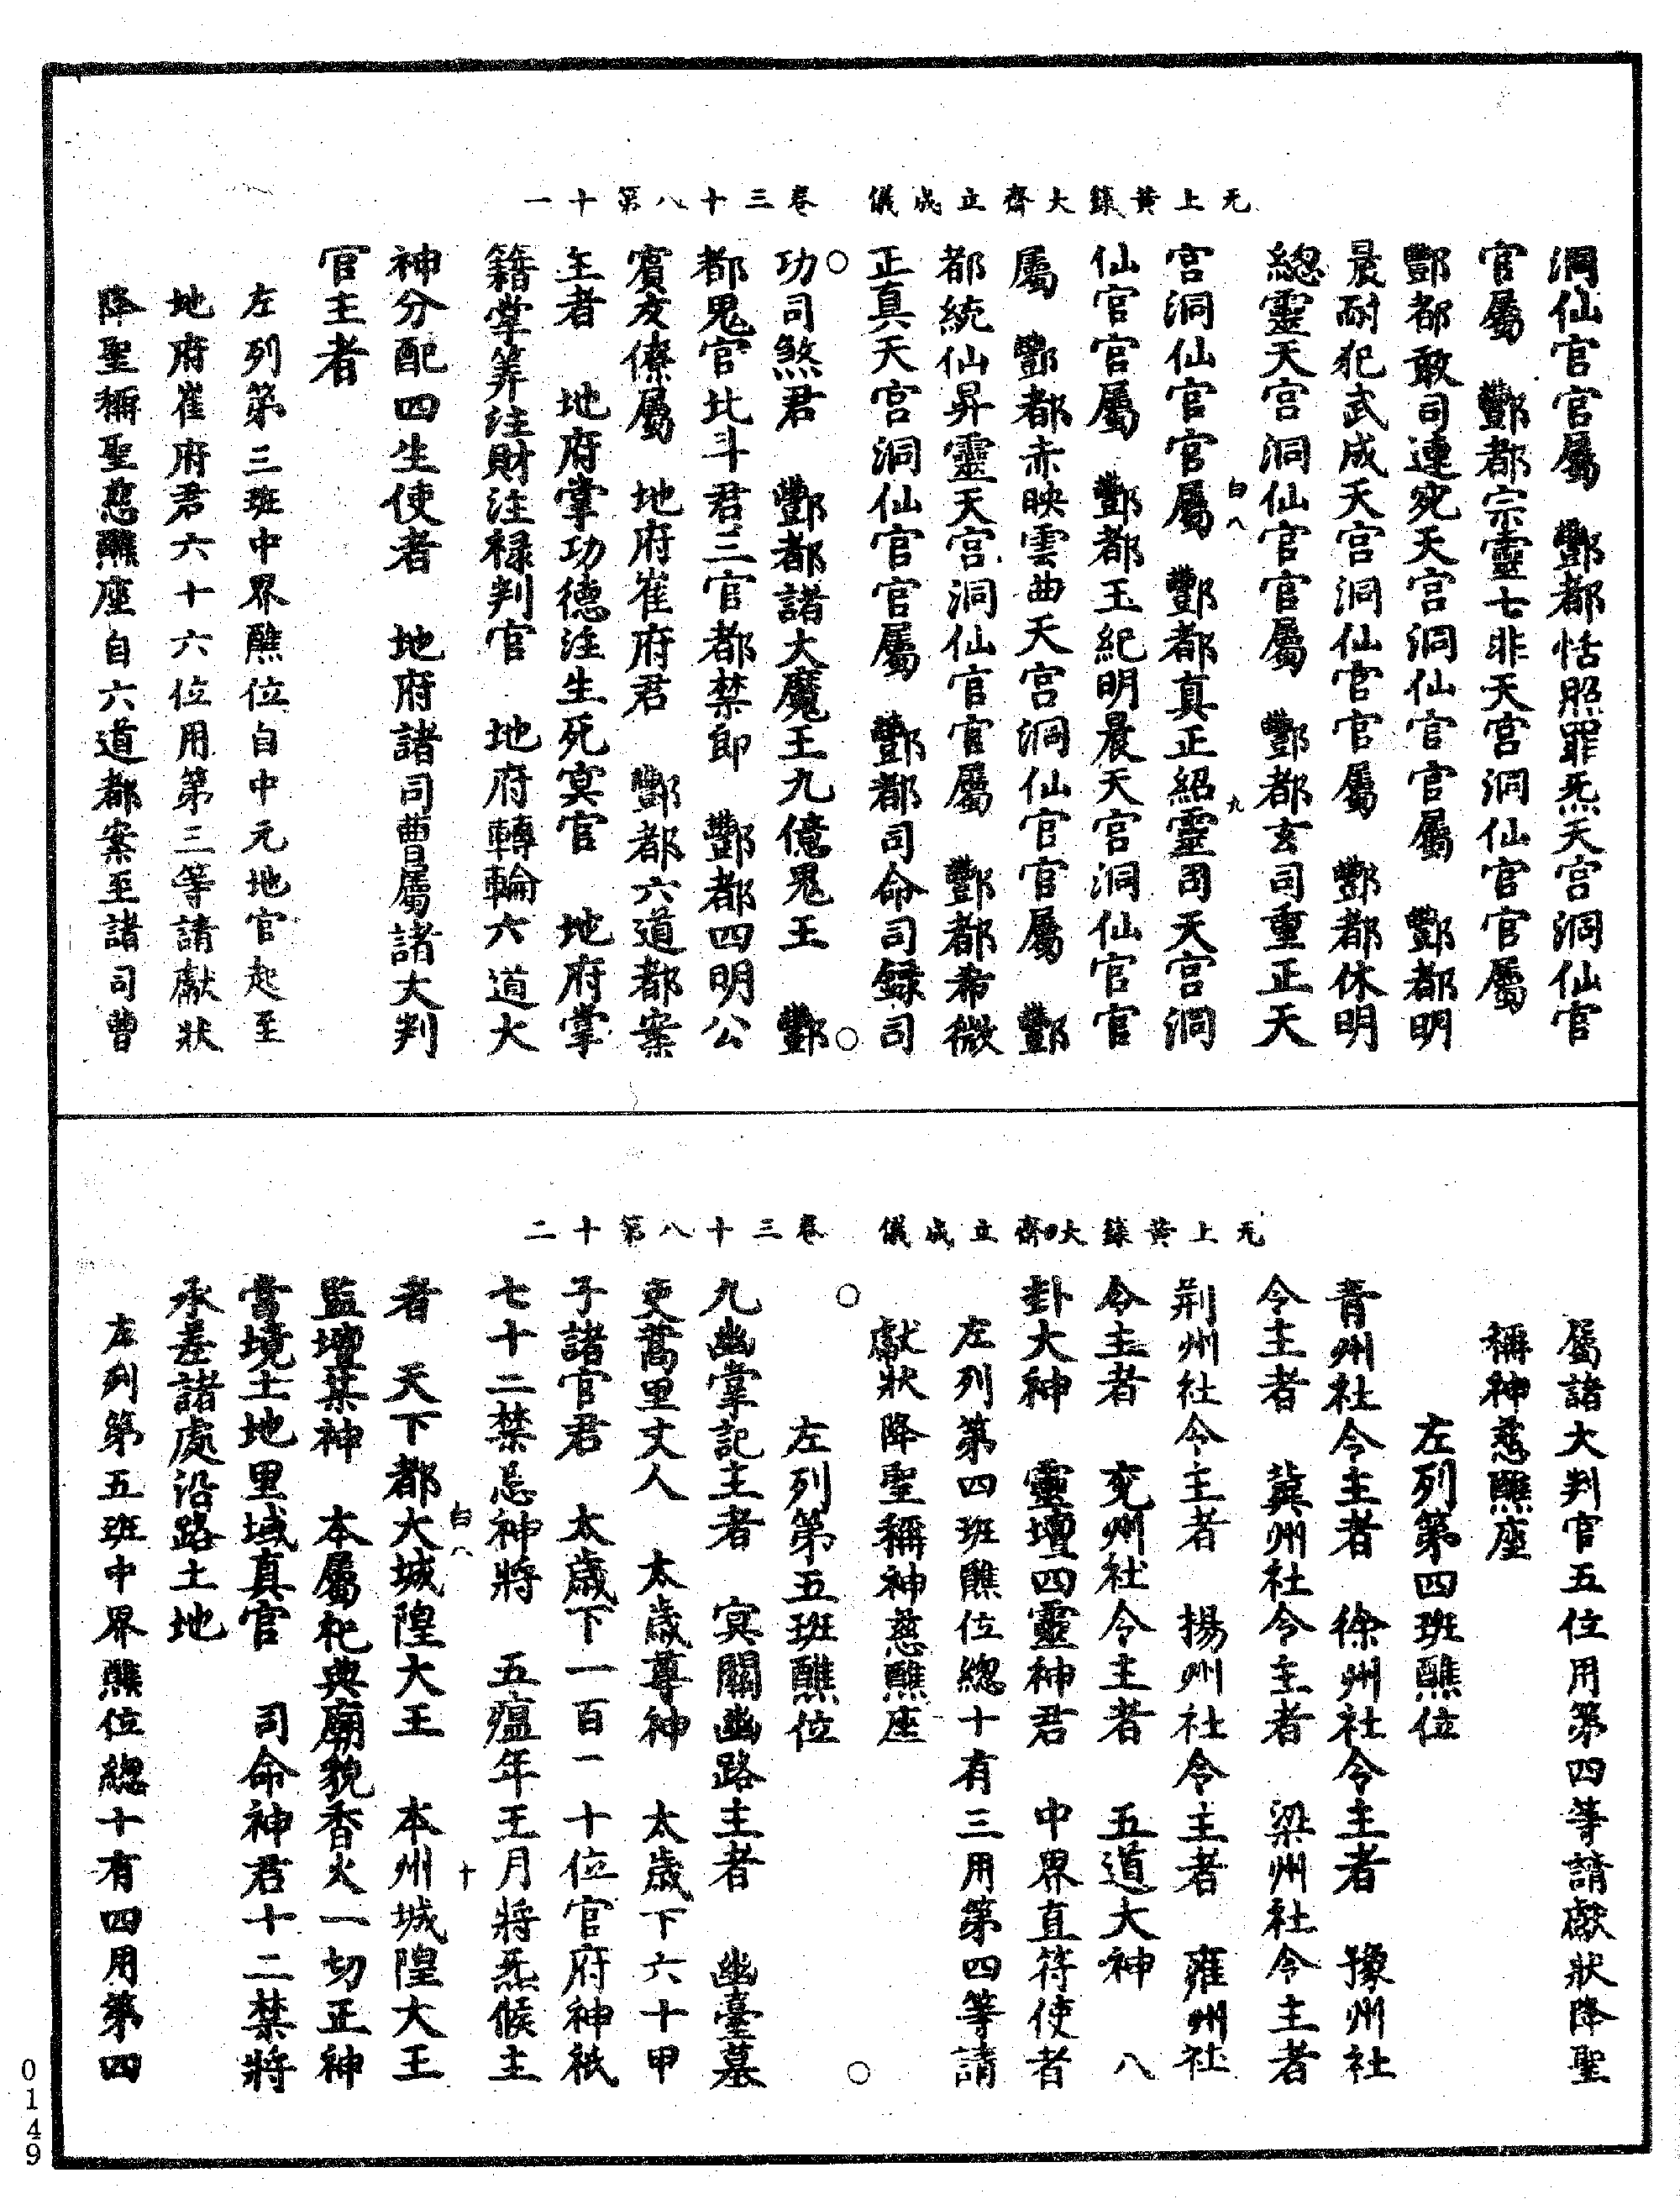 无上黃籙大齋立成儀　卷三十八第十一
洞仙官官屬　酆都恬照罪炁天宮洞仙官
官屬　酆都宗靈七非天宮洞仙官官屬
酆都敢司連宛天宮洞仙官官屬　酆都明
晨耐犯武成天宮洞仙官官屬　酆都休明
總靈天宮洞仙官官屬　酆都玄司重正天
白八　九
宮洞仙官官屬　酆都真正紹靈司天宮洞
仙官官屬　酆都玉紀明晨天宮洞仙官官
屬　酆都赤映雲曲天宮洞仙官官屬　酆
都統仙昇靈天宮洞仙官官屬　酆都希微
正真天宮洞仙官官屬　酆都司命司錄司
功司煞君　酆都諸大魔王九億鬼王　酆
都鬼官北斗君三官都禁郎　酆都四明公
賓友僚屬　地府崔府君　酆都六道都案
主者　地府掌功德注生死冥官　地府掌
籍掌筭注財注祿判官　地府轉輪六道大
神分配四生使者　地府諸司曹屬諸大判
官主者
左列第三班中界醮位自中元地官起至
地府崔府君六十六位用第三等請獻狀
降聖稱聖慈醮座自六道都案至諸司曹
无上黃籙大齋立成儀　卷三十八第十二
屬諸大判官五位用第四等請獻狀降聖
稱神慈醮座
左列第四班醮位
青州社令主者　徐州社令主者　豫州社
令主者　冀州社令主者　梁州社令主者
荊州社令主者　揚州社令主者　雍州社
令主者　兗州社令主者　五道大神　八
卦大神　靈壇四靈神君　中界直符使者
左列第四班醮位總十有三用第四等請
獻狀降聖稱神慈醮座
左列第五班醮位
九幽掌記主者　冥關幽路主者　幽臺墓
吏蒿里丈人　太歲尊神　太歲下六十甲
子諸官君　太歲下一百二十位官府神祇
七十二禁忌神將　五瘟年王月將炁候主
白八　十
者　天下都大城隍大王　本州城隍大王
監壇某神　本屬祀典廟貌香火一切正神
當境土地里域真官　司命神君十二禁將
承差諸處沿路土地
左列第五班中界醮位總十有四用第四
0149